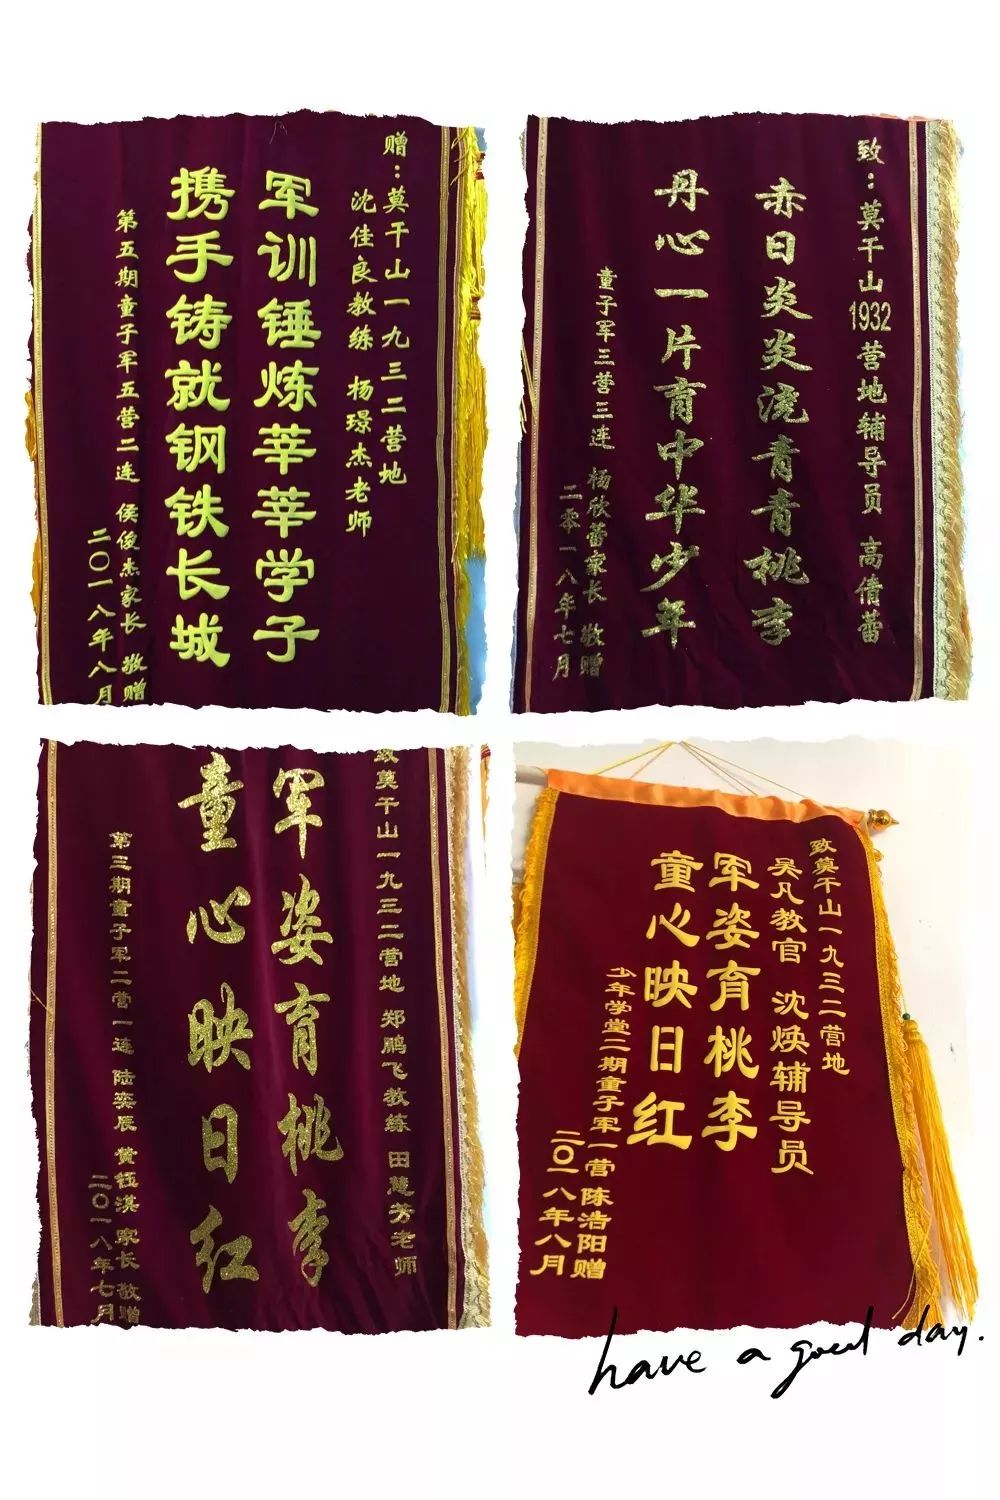 赠：莫干山一九三二营地
沈佳良教练 杨璟杰老师
军训锤炼莘莘学子
携手铸就钢铁长城
第五期童子军五营二连 侯俊杰家长 敬赠
二〇一八年八月
致：莫干山1932营地辅导员 高倩蕾
赤日炎炎浇青青桃李
丹心一片育中华少年
童子军三营三连 杨欣蕾家长 敬赠
二零一八年七月
致莫干山一九三二营地 郑鹏飞教练 田慧芳老师
军姿育桃李
童心映日红
第三期童子军二营一连 陆奕辰 黄钰淇 家长 敬赠
二〇一八年七月
致莫干山一九三二营地
吴凡教官 沈焕辅导员
军姿育桃李
童心映日红
少年学堂二期童子军一营陈浩阳赠
二〇一八年八月
have a good day.